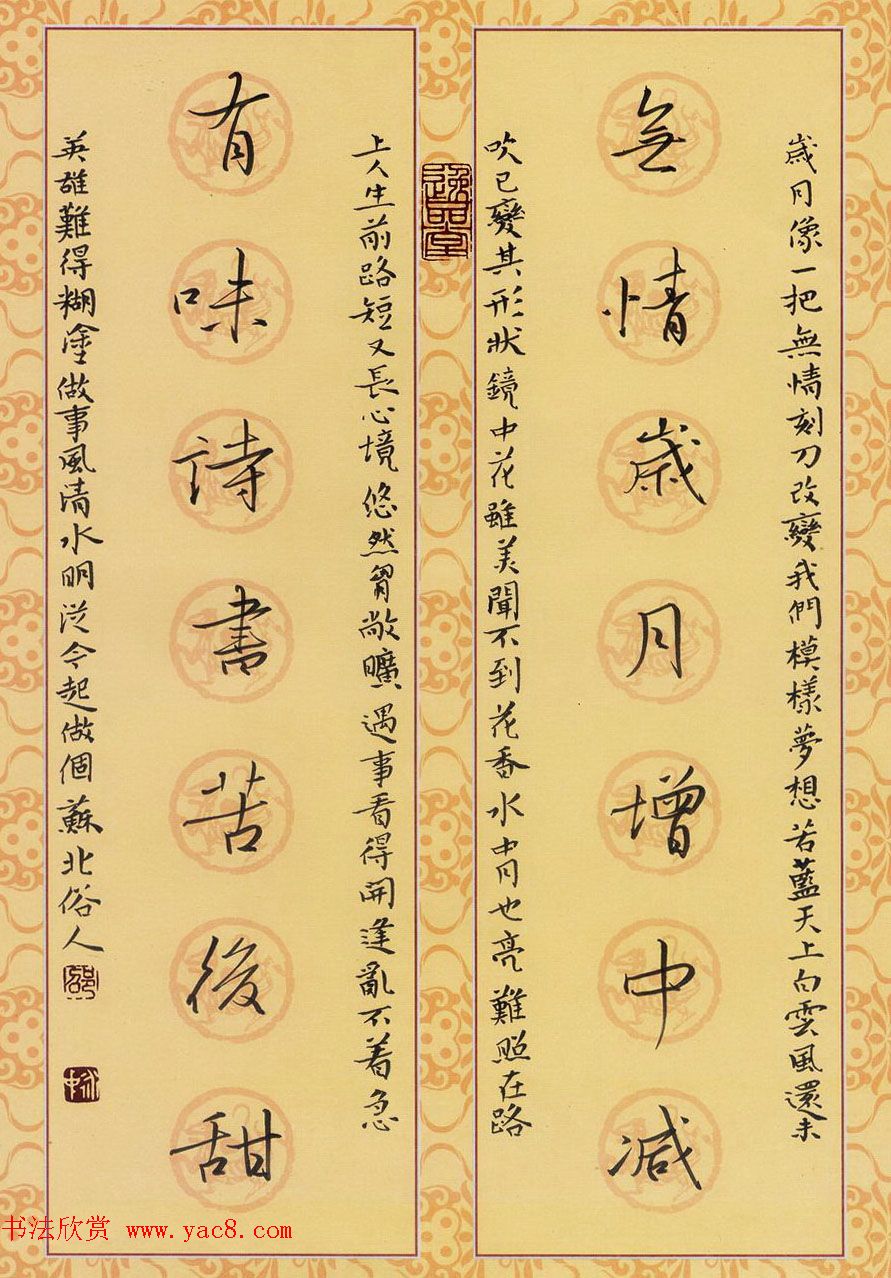 歲月像一把無情刻刀改變我們模樣夢想若藍天上白雲風還未
無情歲月增中減
吹已變其形狀鏡中花雖美聞不到花香水中月也亮難照在路
逸品堂
上人生前路短又長心境悠然胷敞曠遇事看得開逢亂不着急
有味詩書苦後甜
英雄難得糊塗做事風清水明從今起做個蘇北俗人
书法欣赏 www.yac8.com